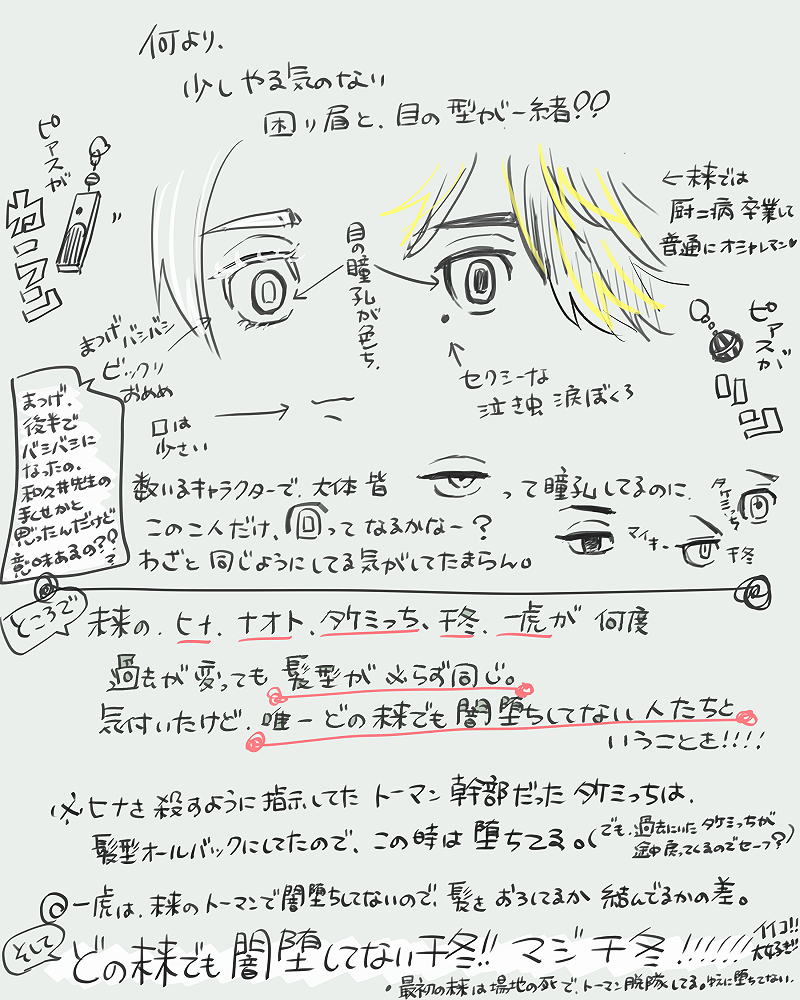 何より、
少しやる気のない
困り眉と、目の型が一緒??
ピアスが
カーフン
←未来では
厨二病卒業して
普通にオシャレマン♥
目の瞳孔が色ち。
まつげバシバシ
ビックリ
おめめ
口は
少さい
セクシーな
泣き虫涙ぼくろ
ピアスが
ロック
まつげ、
後半で
バシバシに
なったの、
和久井先生の
手くせかと
思ったんだけど
意味あるの??
数いるキャラクターで、大体皆 って瞳孔してるのに、
この二人だけ、 ってなるかなー?
わざと同じようにしてる気がしてたまらん。
タケミっち
マイキー
千冬
ところで
未来の、ヒナ、ナオト、タケミっち、千冬、一虎が何度
過去が変っても髪型が必らず同じ。
気付いたけど、唯一どの未来でも闇堕ちしてない人たちと
いうことを!!!!
※ヒナを殺すように指示してたトーマン幹部だったタケミっちは、
髪型オールバックにしてたので、この時は堕ちてる。(でも、過去にいたタケミっちが
途中戻ってくるのでセーフ?)
◎一虎は、未来のトーマンで闇堕ちしてないので、髪をおろしてるか結んでるかの差。
そして
どの未来でも闇堕してない千冬!!マジ千冬!!!!!!
イイコ!!
大好き
・最初の未来は場地の死で、トーマン脱隊してる。特に堕ちてない。